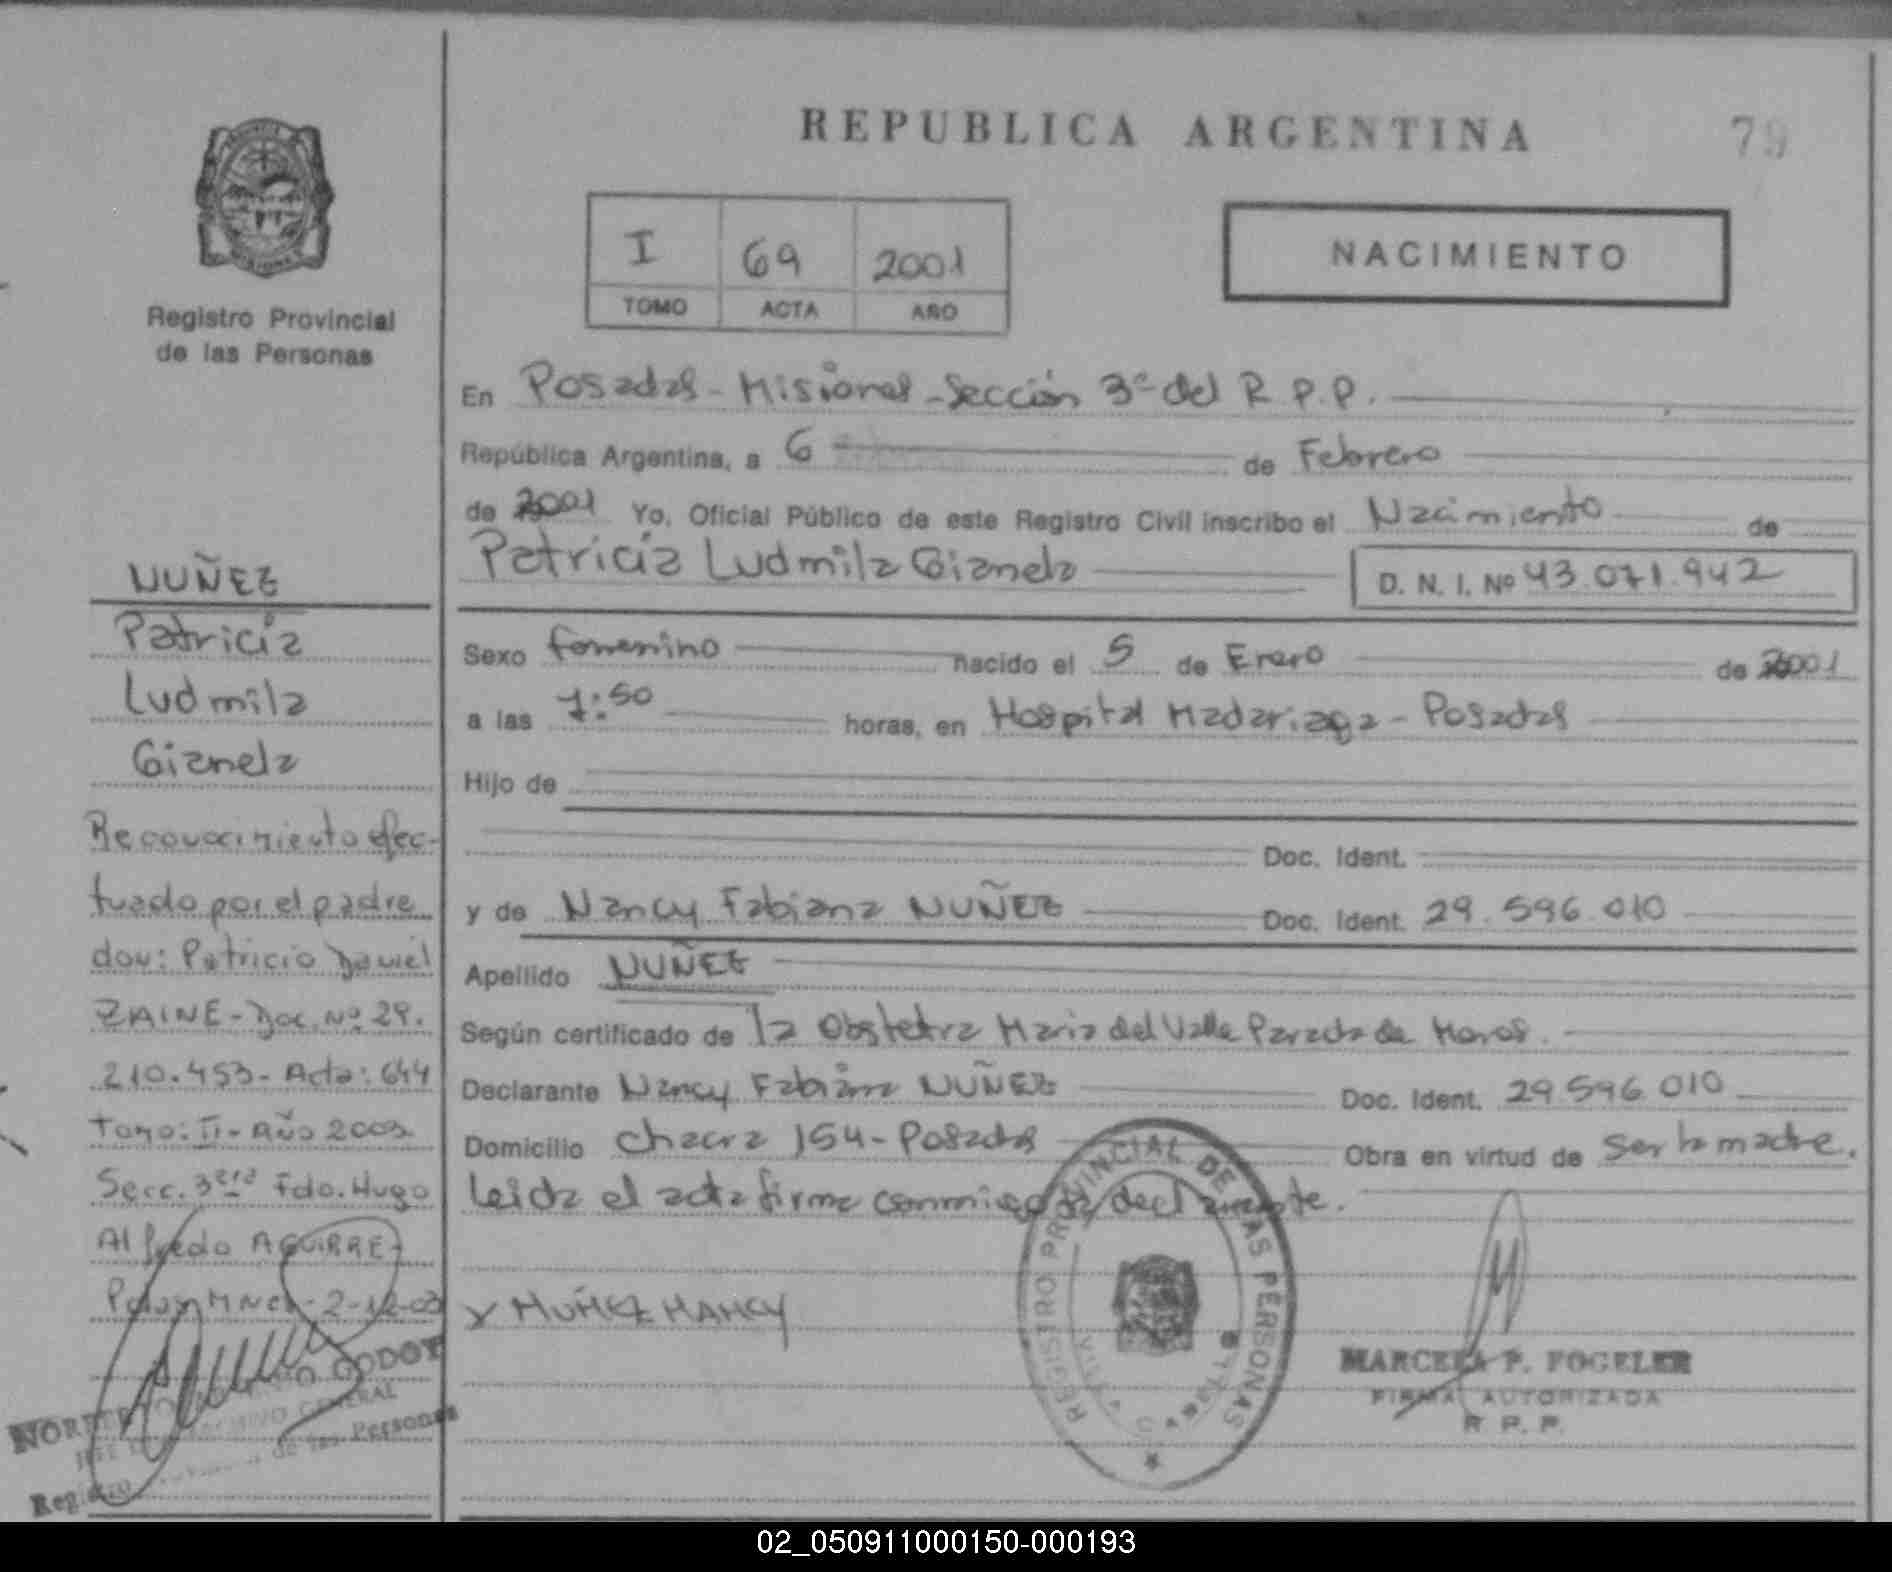 REPUBLICA ARGENTINA
79
I 69 2001
TOMO ACTA AÑO
NACIMIENTO
Registro Provincial
de las Personas
NUÑEZ
Patricia
Ludmila
Gianela
Reconocimiento efec-
tuado por el padre
don: Patricio Daniel
ZAINE - Doc. Nº 29.
210.453 - Acta: 644
Tomo: II - Año 2003
Secc. 3era Fdo. Hugo
Alfredo AGUIRRE -
2-12-03
GODOY
ARCHIVO GENERAL
Registro de las Personas
En Posadas - Misiones - Sección 3º del R.P.P.
República Argentina, a 6 de Febrero
de 2001 Yo, Oficial Público de este Registro Civil inscribo el Nacimiento de
Patricia Ludmila Gianela D. N. I. Nº 43.071.942
Sexo femenino nacido el 5 de Enero de 2001
a las 7:50 horas, en Hospital Madariaga - Posadas
Hijo de
Doc. Ident.
y de Nancy Fabiana NUÑEZ Doc. Ident. 29.596.010
Apellido NUÑEZ
Según certificado de la Obstetra Maria del Valle Parada de
Declarante Nancy Fabiana NUÑEZ Doc. Ident. 29.596.010
Domicilio Chacra 154 - Posadas Obra en virtud de ser la madre.
Leida el acta firma conmigo la declarante.
NUÑEZ NANCY
REGISTRO PROVINCIAL DE LAS PERSONAS
MARCELA P. FOGELER
FIRMA AUTORIZADA
R. P. P.
02_050911000150-000193